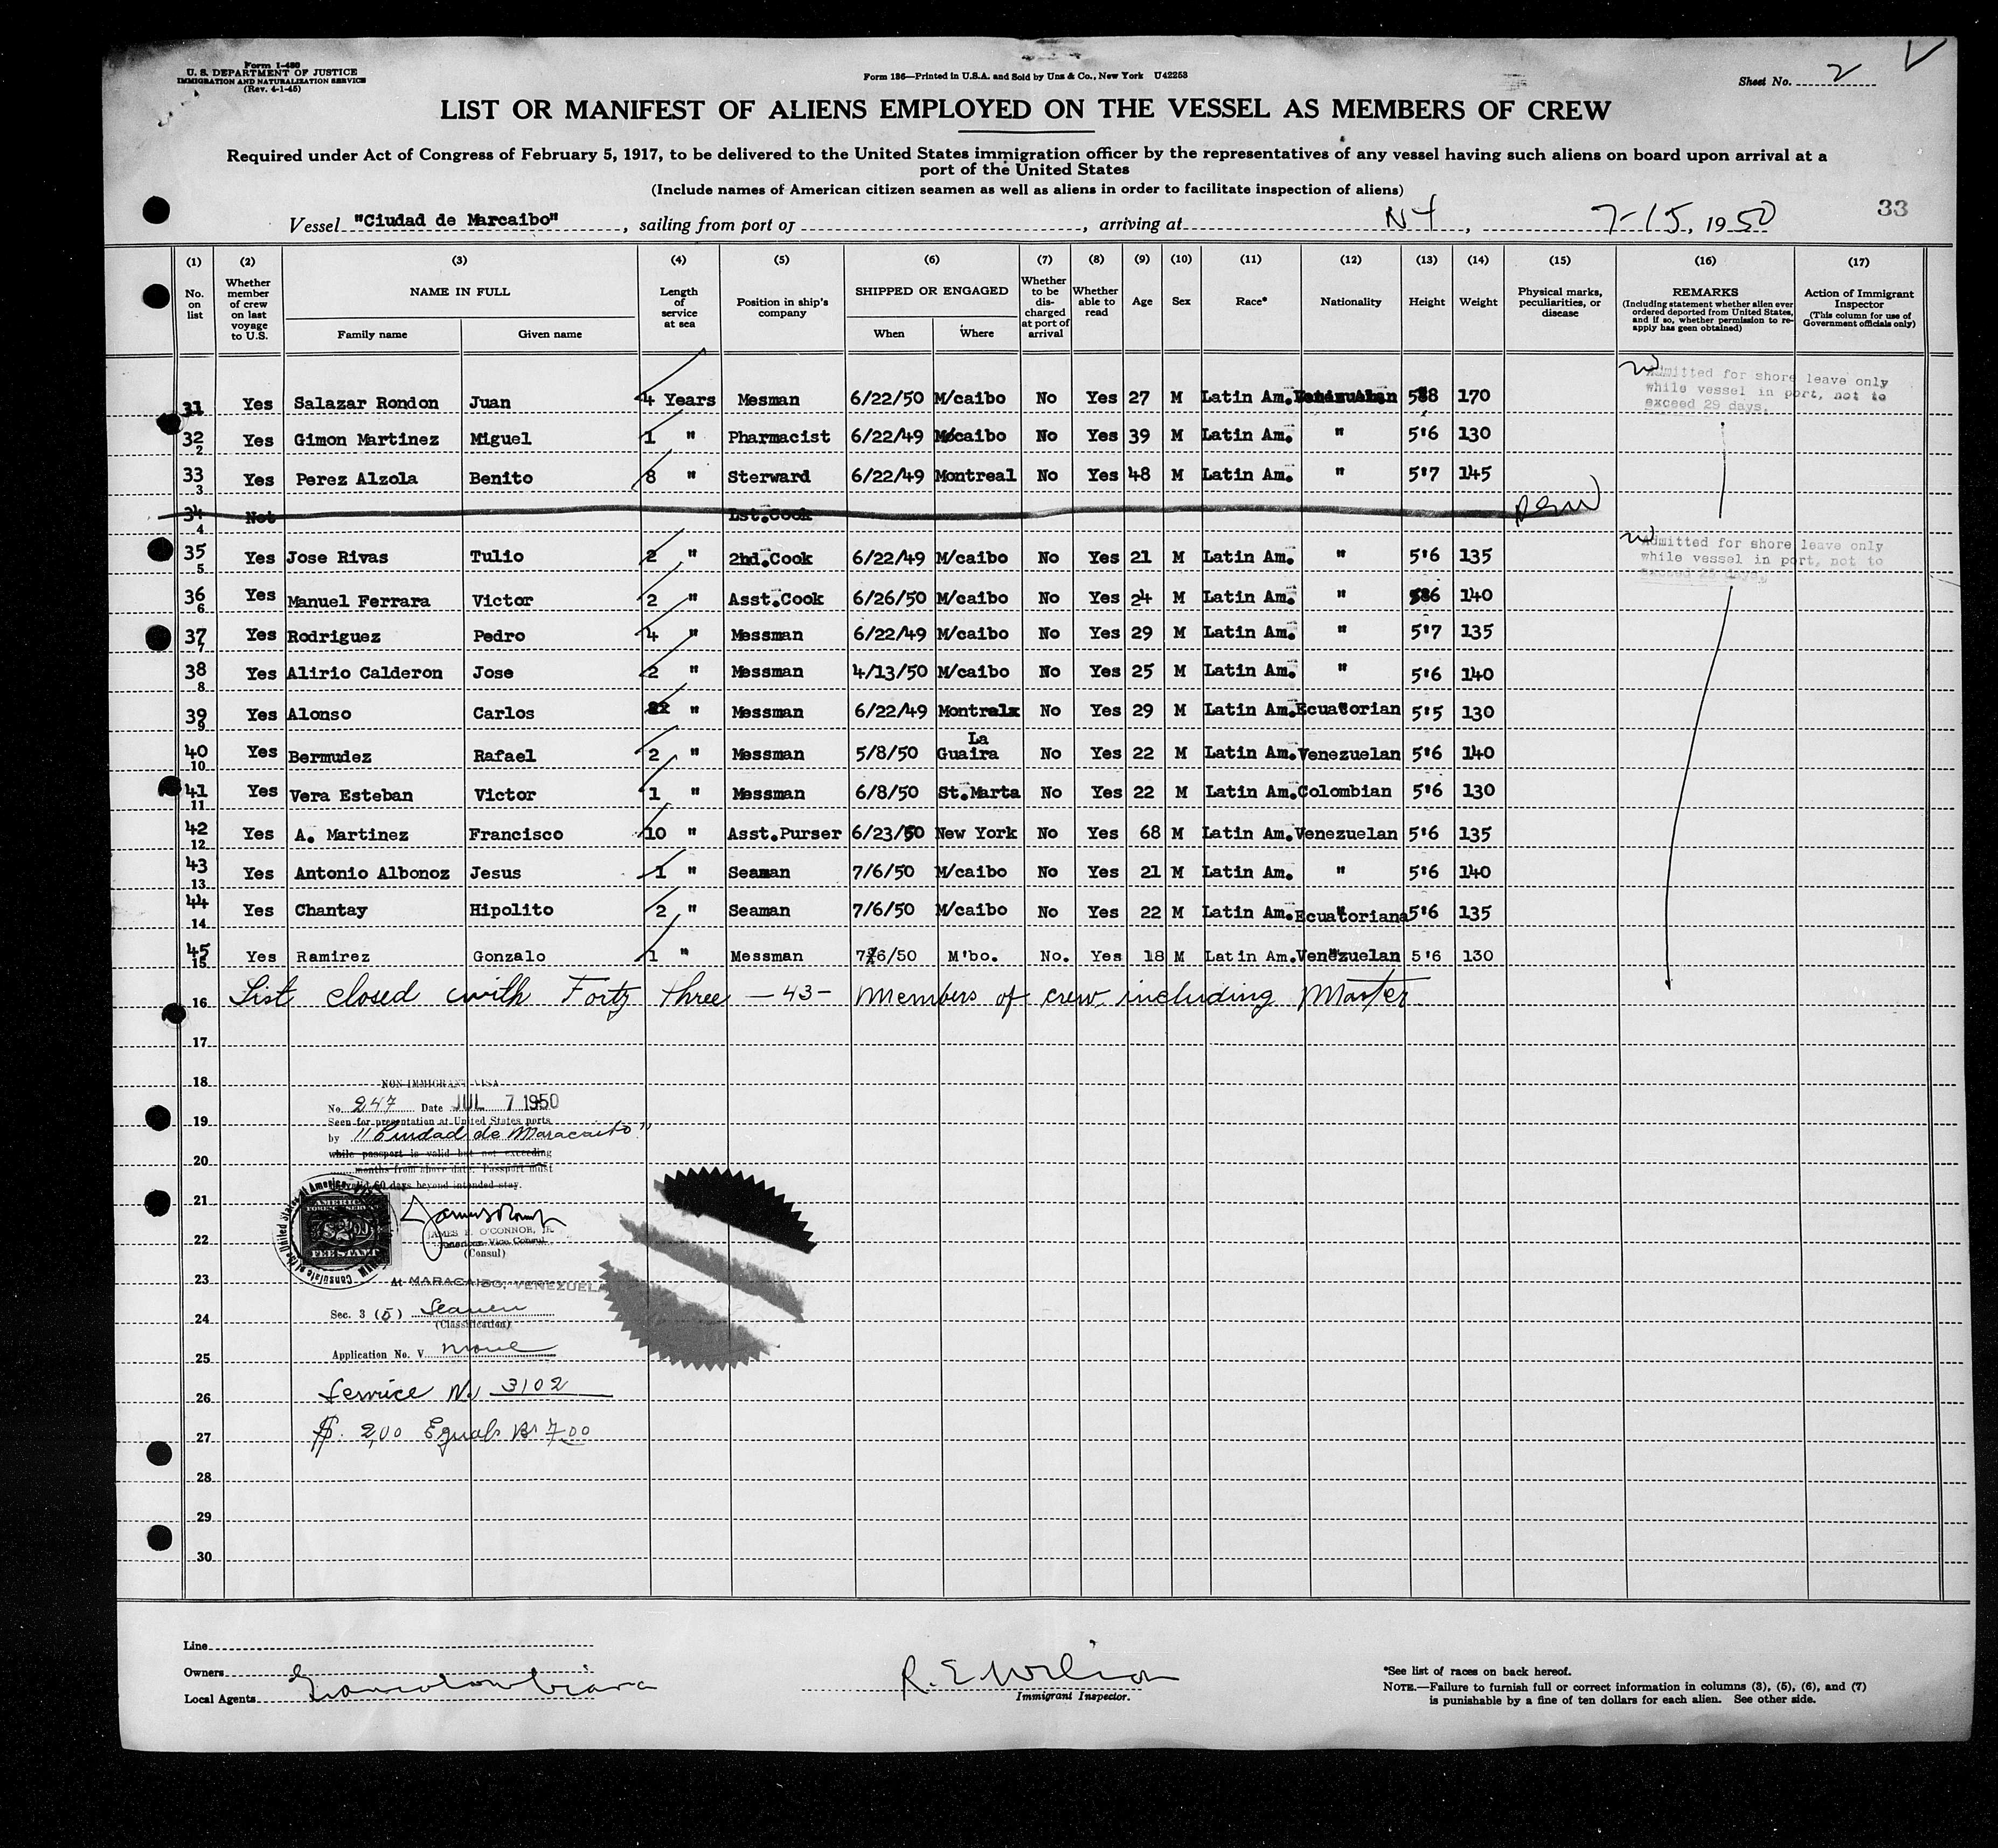 Form I-480
U. S. DEPARTMENT OF JUSTICE
IMMIGRATION AND NATURALIZATION SERVICE
(Rev. 4-1-45)
Form 136—Printed in U.S.A. and Sold by Unz & Co., New York U42253
Sheet No. 2
LIST OR MANIFEST OF ALIENS EMPLOYED ON THE VESSEL AS MEMBERS OF CREW
Required under Act of Congress of February 5, 1917, to be delivered to the United States immigration officer by the representatives of any vessel having such aliens on board upon arrival at a
port of the United States
(Include names of American citizen seamen as well as aliens in order to facilitate inspection of aliens)
Vessel "Ciudad de Marcaibo", sailing from port of , arriving at NY, 7-15, 1950 33
(1) (2) (3) (4) (5) (6) (7) (8) (9) (10) (11) (12) (13) (14) (15) (16) (17)
No. on list
Whether member of crew on last voyage to U.S.
NAME IN FULL
Family name Given name
Length of service at sea
Position in ship's company
SHIPPED OR ENGAGED
When Where
Whether to be discharged at port of arrival
Whether able to read
Age
Sex
Race*
Nationality
Height
Weight
Physical marks, peculiarities, or disease
REMARKS
(Including statement whether alien ever ordered deported from United States, and if so, whether permission to re-apply has geen obtained)
Action of Immigrant Inspector
(This column for use of Government officials only)
31 Yes Salazar Rondon Juan 4 Years Mesman 6/22/50 M/caibo No Yes 27 M Latin Am. 5'8 170
Admitted for shore leave only
while vessel in port, not to
exceed 29 days.
32 2 Yes Gimon Martinez Miguel 1 " Pharmacist 6/22/49 M/caibo No Yes 39 M Latin Am. " 5'6 130
33 3 Yes Perez Alzola Benito 8 " Sterward 6/22/49 Montreal No Yes 48 M Latin Am. " 5'7 145
34 4 Not Lst.Cook
35 5 Yes Jose Rivas Tulio 2 " 2hd.Cook 6/22/49 M/caibo No Yes 21 M Latin Am. " 5'6 135
Admitted for shore leave only
while vessel in port, not to
exceed 29 days.
36 6 Yes Manuel Ferrara Victor 2 " Asst.Cook 6/26/50 M/caibo No Yes 24 M Latin Am. " 5'6 140
37 7 Yes Rodriguez Pedro 4 " Messman 6/22/49 M/caibo No Yes 29 M Latin Am. " 5'7 135
38 8 Yes Alirio Calderon Jose 2 " Messman 4/13/50 M/caibo No Yes 25 M Latin Am. " 5'6 140
39 9 Yes Alonso Carlos " Messman 6/22/49 Montrealx No Yes 29 M Latin Am. Ecuatorian 5'5 130
40 10 Yes Bermudez Rafael 2 " Messman 5/8/50 La Guaira No Yes 22 M Latin Am. Venezuelan 5'6 140
41 11 Yes Vera Esteban Victor 1 " Messman 6/8/50 St.Marta No Yes 22 M Latin Am. Colombian 5'6 130
42 12 Yes A. Martinez Francisco 10 " Asst.Purser 6/23/50 New York No Yes 68 M Latin Am. Venezuelan 5'6 135
43 13 Yes Antonio Albonoz Jesus 1 " Seaman 7/6/50 M/caibo No Yes 21 M Latin Am. " 5'6 140
44 14 Yes Chantay Hipolito 2 " Seaman 7/6/50 M/caibo No Yes 22 M Latin Am. Ecuatoriana 5'6 135
45 15 Yes Ramirez Gonzalo 1 " Messman 7/6/50 M'bo. No. Yes 18 M Latin Am. Venezuelan 5'6 130
16 List closed with Forty three — 43 — members of crew including Master
17
18
NON-IMMIGRANT VISA
No. 247 Date JUL 7 1950
19
Seen for presentation at United States ports
by "Ciudad de Maracaibo"
while passport is valid but not exceeding
20
months from above date. Passport must
be valid 60 days beyond intended stay.
21
AMERICAN FOREIGN SERVICE
FEE STAMP
JAMES F. O'CONNOR, JR.
American Vice Consul
22
(Consul)
23
At MARACAIBO, VENEZUELA
Sec. 3 (5) Seamen
24
(Classification)
Application No. V none
25
26
Service No 3102
27
$. 2,00 Equals Bs 7.00
28
29
30
Line
Owners
Local Agents Grancolombiana
R. E. Wilson
Immigrant Inspector.
*See list of races on back hereof.
NOTE.—Failure to furnish full or correct information in columns (3), (5), (6), and (7)
is punishable by a fine of ten dollars for each alien. See other side.